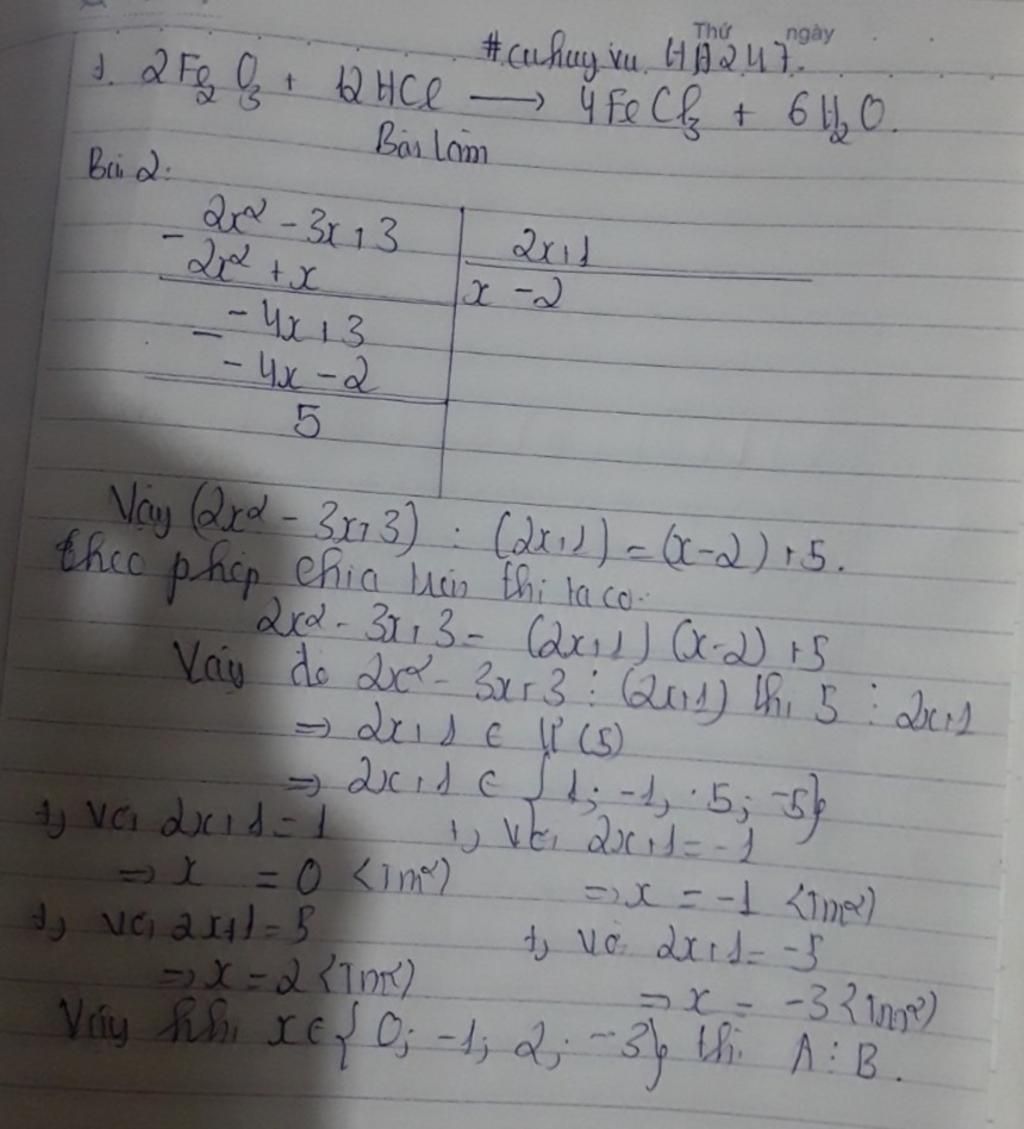 Thứ ngày
#cuhuyvu HA247.
1. 2Fe₂O₃ + 12HCl → 4FeCl₃ + 6H₂O.
Bài làm
Bài 2:
2x² - 3x + 3 | 2x+1
- 2x² + x | x - 2
- 4x + 3
- - 4x - 2
5
Vậy (2x² - 3x + 3) : (2x+1) = (x-2) + 5.
theo phép chia trên thì ta có.
2x² - 3x + 3 = (2x+1) (x-2) + 5
Vậy để 2x² - 3x + 3 ⋮ (2x+1) thì 5 ⋮ 2x+1
⇒ 2x+1 ∈ Ư(5)
⇒ 2x+1 ∈ {1; -1, 5; -5}
+, Với 2x+1 = 1 +, Với 2x+1 = -1
⇒ x = 0 <Tm²) ⇒ x = -1 <Tm²)
+, với 2x+1 = 5 +, với 2x+1 = -5
⇒ x = 2 <Tm²) ⇒ x = -3 <Tm²)
Vậy khi x ∈ { 0; -1; 2; -3} thì A ⋮ B.